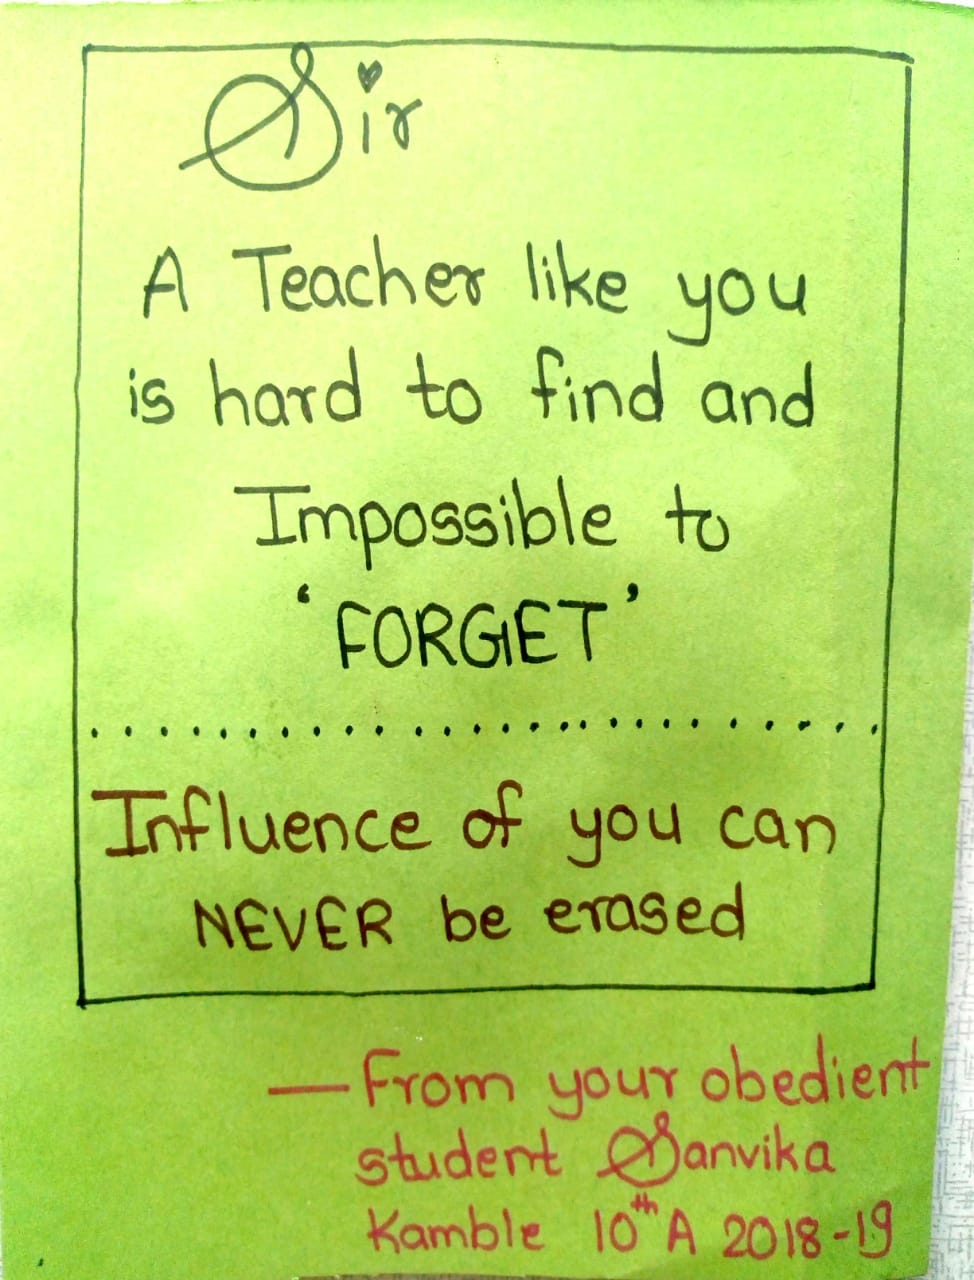 Sir
A Teacher like you
is hard to find and
Impossible to
‘FORGET’
Influence of you can
NEVER be erased
— From your obedient
student Sanvika
Kamble 10th A 2018-19